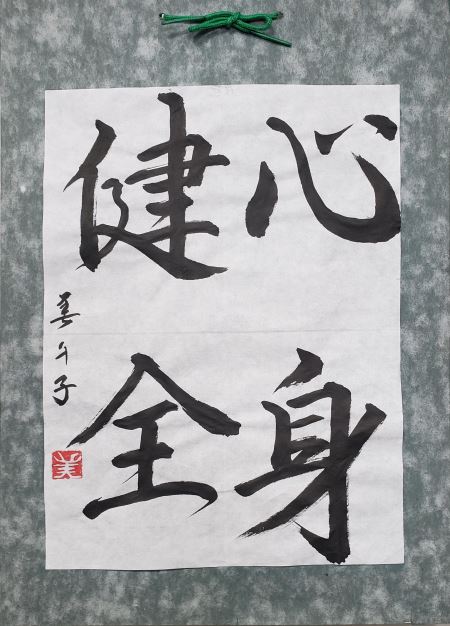 心身
健全
美午子
美